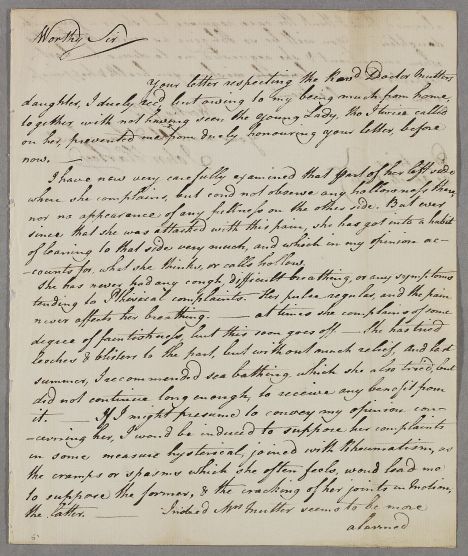 Worthy Sir
Your letter respecting the Revd Doctor Mutters
daughter, I duely recd but owing to my being much from home,
together with not having seen the young Lady, tho I twice called
on her, prevented me from duely honouring your letter, before
now. —
I have now very carefully examined that part of her left side
where she complains, but coud not observe any hollowness there,
nor no appearance of any fullness on the other side. But ever
since that she was attacked with this pain, she has got into a habit
of leaning to that side very much, and which in my opinion ac-
-counts for, what she thinks, or calls hollow.
She has never had any cough, difficult breathing, or any symptoms
tending to Phthisical complaints. Her pulse regular, and the pain
never affects her breathing. — at times she complains of some
degree of faintishness, but this soon goes off — She has tried
leeches & blisters to the part, but without much relief, and last
summer, I recommended sea bathing which she also tried, but
did not continue long enough, to receive any benefit from
it. — If I might presume to convey my opinion con-
-cerning her, I woud be induced to suppose her complaints
in some measure hysterical, joined with Rheumatism, as
the cramps or spasms which she often feels, woud lead me
to suppose the former, & the cracking of her joints in motion,
the latter. — Indeed Mrs Mutter seems to be more
alarmed